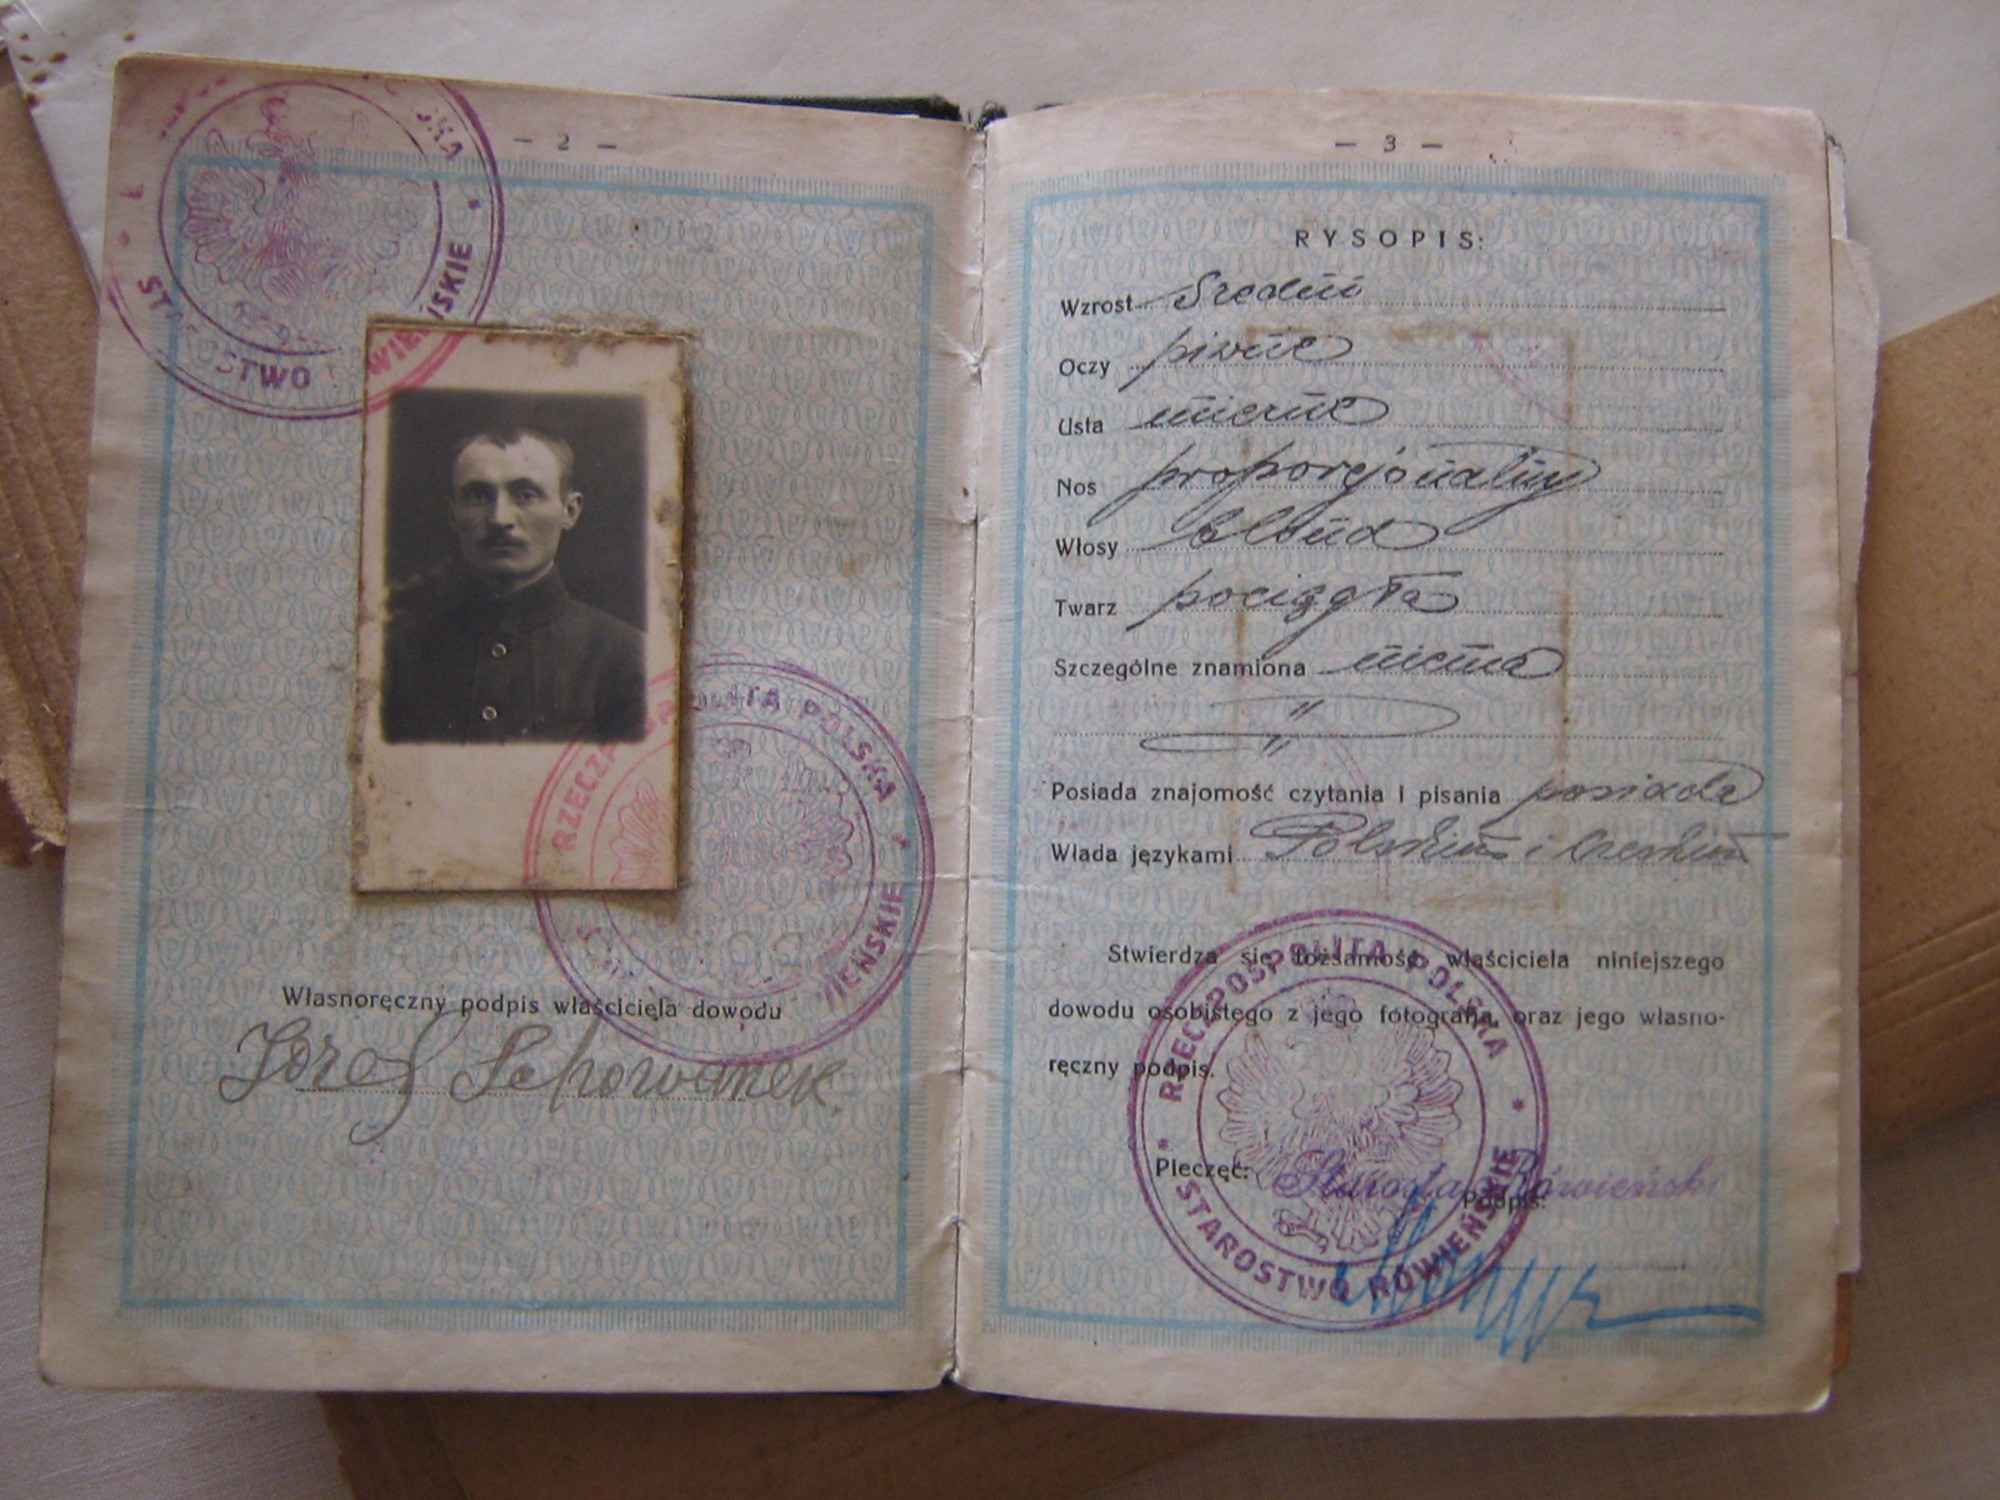 — 2 —
STAROSTWO RÓWIEŃSKIE
RZECZPOSPOLITA POLSKA
WIEŃSKIE
Własnoręczny podpis właściciela dowodu
Jozef Sehowanek
— 3 —
RYSOPIS:
Wzrost średni
Oczy piwne
Usta mierne
Nos proporcjonalny
Włosy blond
Twarz pociągła
Szczególne znamiona niema
Posiada znajomość czytania i pisania posiada
Włada językami Polskim i Czeskim
Stwierdza się tożsamość właściciela niniejszego
dowodu osobistego z jego fotografją, oraz jego własno-
ręczny podpis.
RZECZPOSPOLITA POLSKA
Pieczęć: Starosta Rówieński
Podpis:
* STAROSTWO RÓWIEŃSKIE *